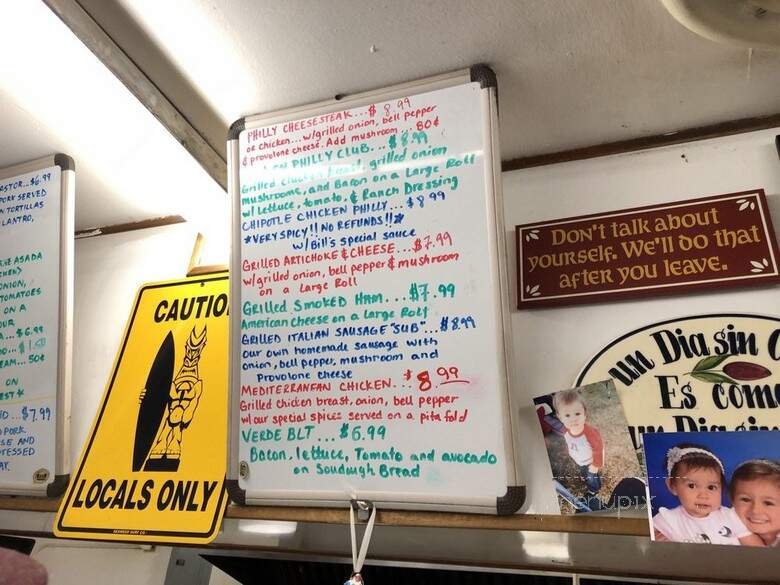 PHILLY CHEESESTEAK...$ 8.99
or chicken...w/grilled onion, bell pepper
& provolone cheese. Add mushroom... 80¢
PHILLY CLUB... $8.99
Grilled grilled onion
mushrooms, and Bacon on a Large Roll
w/ Lettuce, tomato, & Ranch Dressing
CHIPOTLE CHICKEN PHILLY... $8.99
*VERY SPICY!! NO REFUNDS!!*
w/ Bill's special sauce
GRILLED ARTICHOKE & CHEESE...$7.99
w/grilled onion, bell pepper & mushroom
on a Large Roll
GRILLED SMOKED HAM....$7.99
American cheese on a Large Roll
GRILLED ITALIAN SAUSAGE "SUB"...$8.99
our own homemade sausage with
onion, bell pepper, mushroom and
Provolone cheese
MEDITERRANEAN CHICKEN..$8.99
Grilled chicken breast, onion, bell pepper
w/our special spices served on a pita fold
VERDE BLT...$6.99
Bacon, lettuce, Tomato and avocado
on Sourdough Bread
STOR...$6.99
PORK SERVED
N TORTILLAS
LANTRO,
ASADA
ONION,
TOMATOES
ON A
...$6.99
EAM...50¢
ON
...$7.99
PORK.
SE AND
CAUTIO
LOCALS ONLY
Don't talk about
yourself. We'll do that
after you leave.
un Dia sin
Es com
un Dia sin
menupix